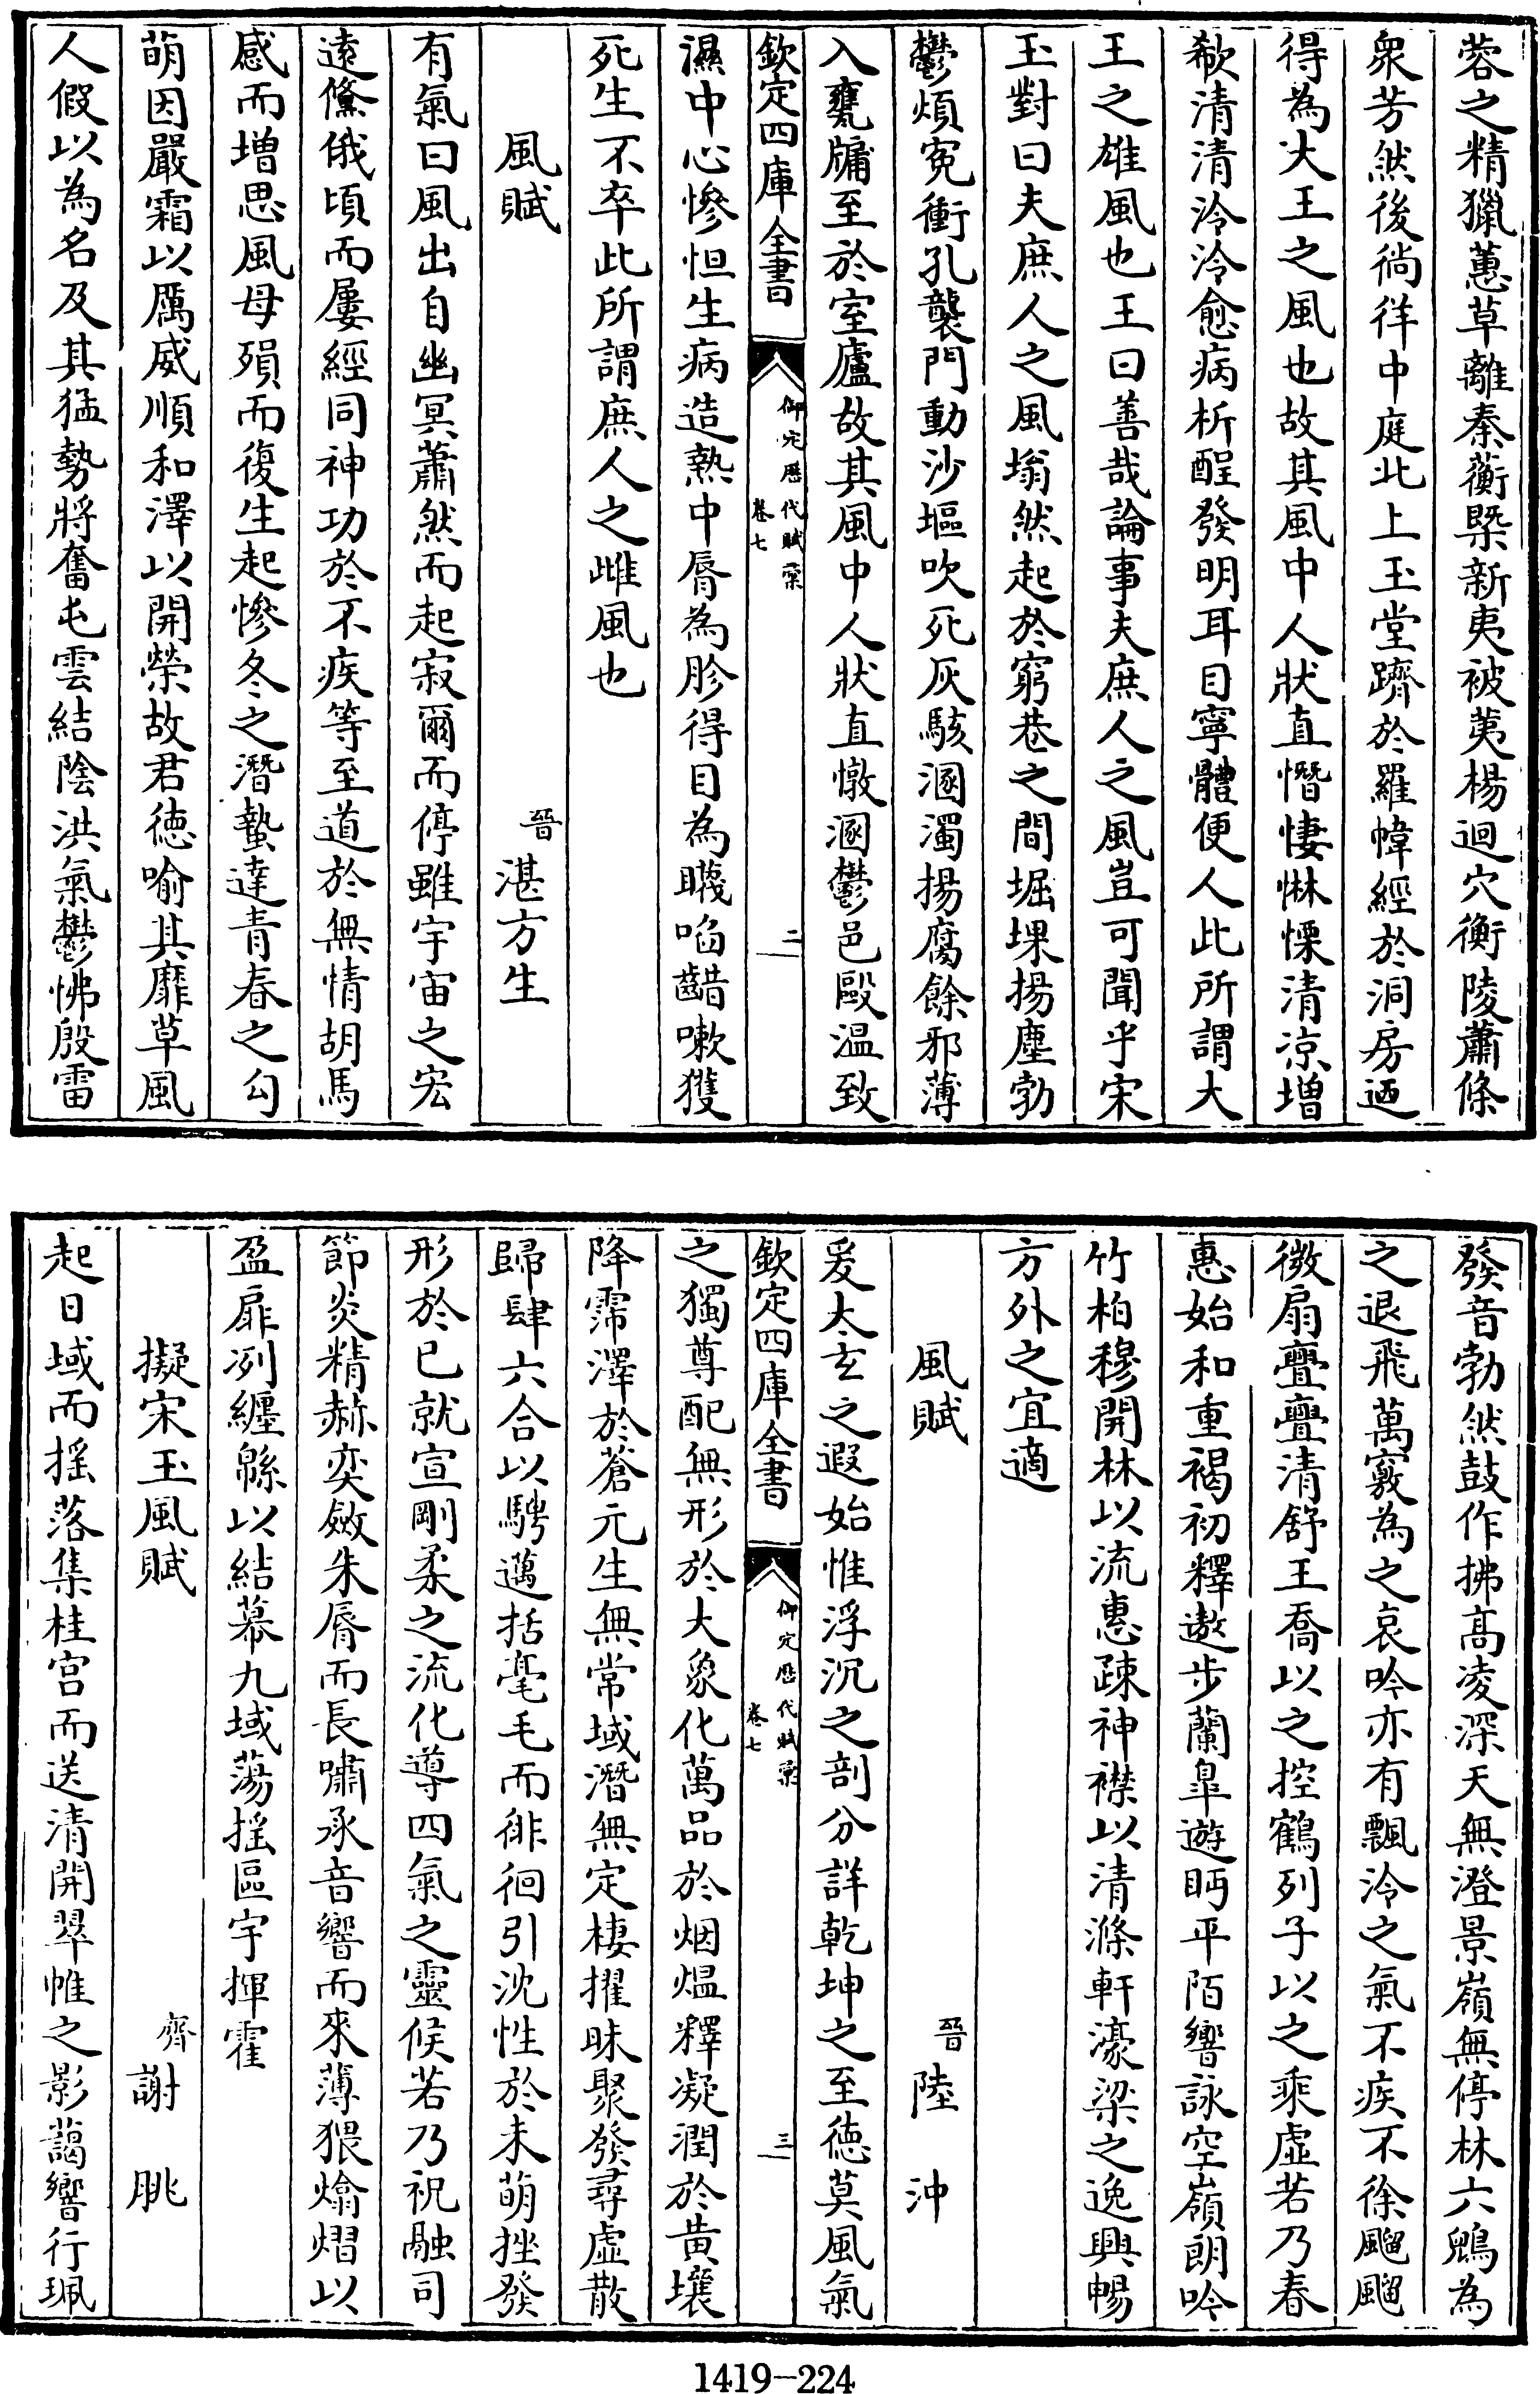 蓉之精獵蕙草離秦蘅槩新夷被荑楊迴穴衡陵蕭條
衆芳然後徜徉中庭北上玉堂躋於羅幃經於洞房廼
得為大王之風也故其風中人狀直憯悽惏慄清凉增
欷清清泠泠愈病析酲發明耳目寧體便人此所謂大
王之雄風也王曰善哉論事夫庶人之風豈可聞乎宋
玉對曰夫庶人之風塕然起於窮巷之間堀堁揚塵勃
鬱煩寃衝孔襲門動沙堁吹死灰駭溷濁揚腐餘邪薄
入甕牖至於室廬故其風中人狀直憞溷鬱邑毆温致
欽定四庫全書
御定歷代賦彙
卷七
二
濕中心慘怛生病造熱中脣為胗得目為䁾啗齰嗽獲
死生不卒此所謂庶人之雌風也
風賦 晉湛方生
有氣曰風出自幽冥蕭然而起寂爾而停雖宇宙之宏
逺儵俄頃而屢經同神功於不疾等至道於無情胡馬
感而增思風母殞而復生起慘冬之潛蟄達青春之勾
萌因嚴霜以厲威順和澤以開榮故君徳喻其靡草風
人假以為名及其猛勢將奮屯雲結陰洪氣鬱怫殷雷
發音勃然鼓作拂髙凌深天無澄景嶺無停林六鷁為
之退飛萬竅為之哀吟亦有飄泠之氣不疾不徐飀飀
微扇亹亹清舒王喬以之控鶴列子以之乘虛若乃春
惠始和重褐初釋遨步蘭臯遊眄平陌響詠空嶺朗吟
竹柏穆開林以流惠疎神襟以清滌軒濠梁之逸興暢
方外之宜適
風賦 晉陸沖
爰太玄之遐始惟浮沉之剖分詳乾坤之至徳莫風氣
欽定四庫全書
御定歷代賦彙
卷七
三
之獨尊配無形於大象化萬品於烟煴釋凝潤於黄壤
降霈澤於蒼元生無常域潛無定棲擢昧聚發尋虛散
歸肆六合以騁邁括毫毛而徘徊引沈性於未萌挫發
形於已就宣剛柔之流化導四氣之靈候若乃祝融司
節炎精赫奕斂朱脣而長嘯承音響而來薄猥㷸熠以
盈扉冽纒緜以結幕九域蕩揺區宇揮霍
擬宋玉風賦 齊謝朓
起日域而揺落集桂宫而送清開翠帷之影藹響行珮
1419-224